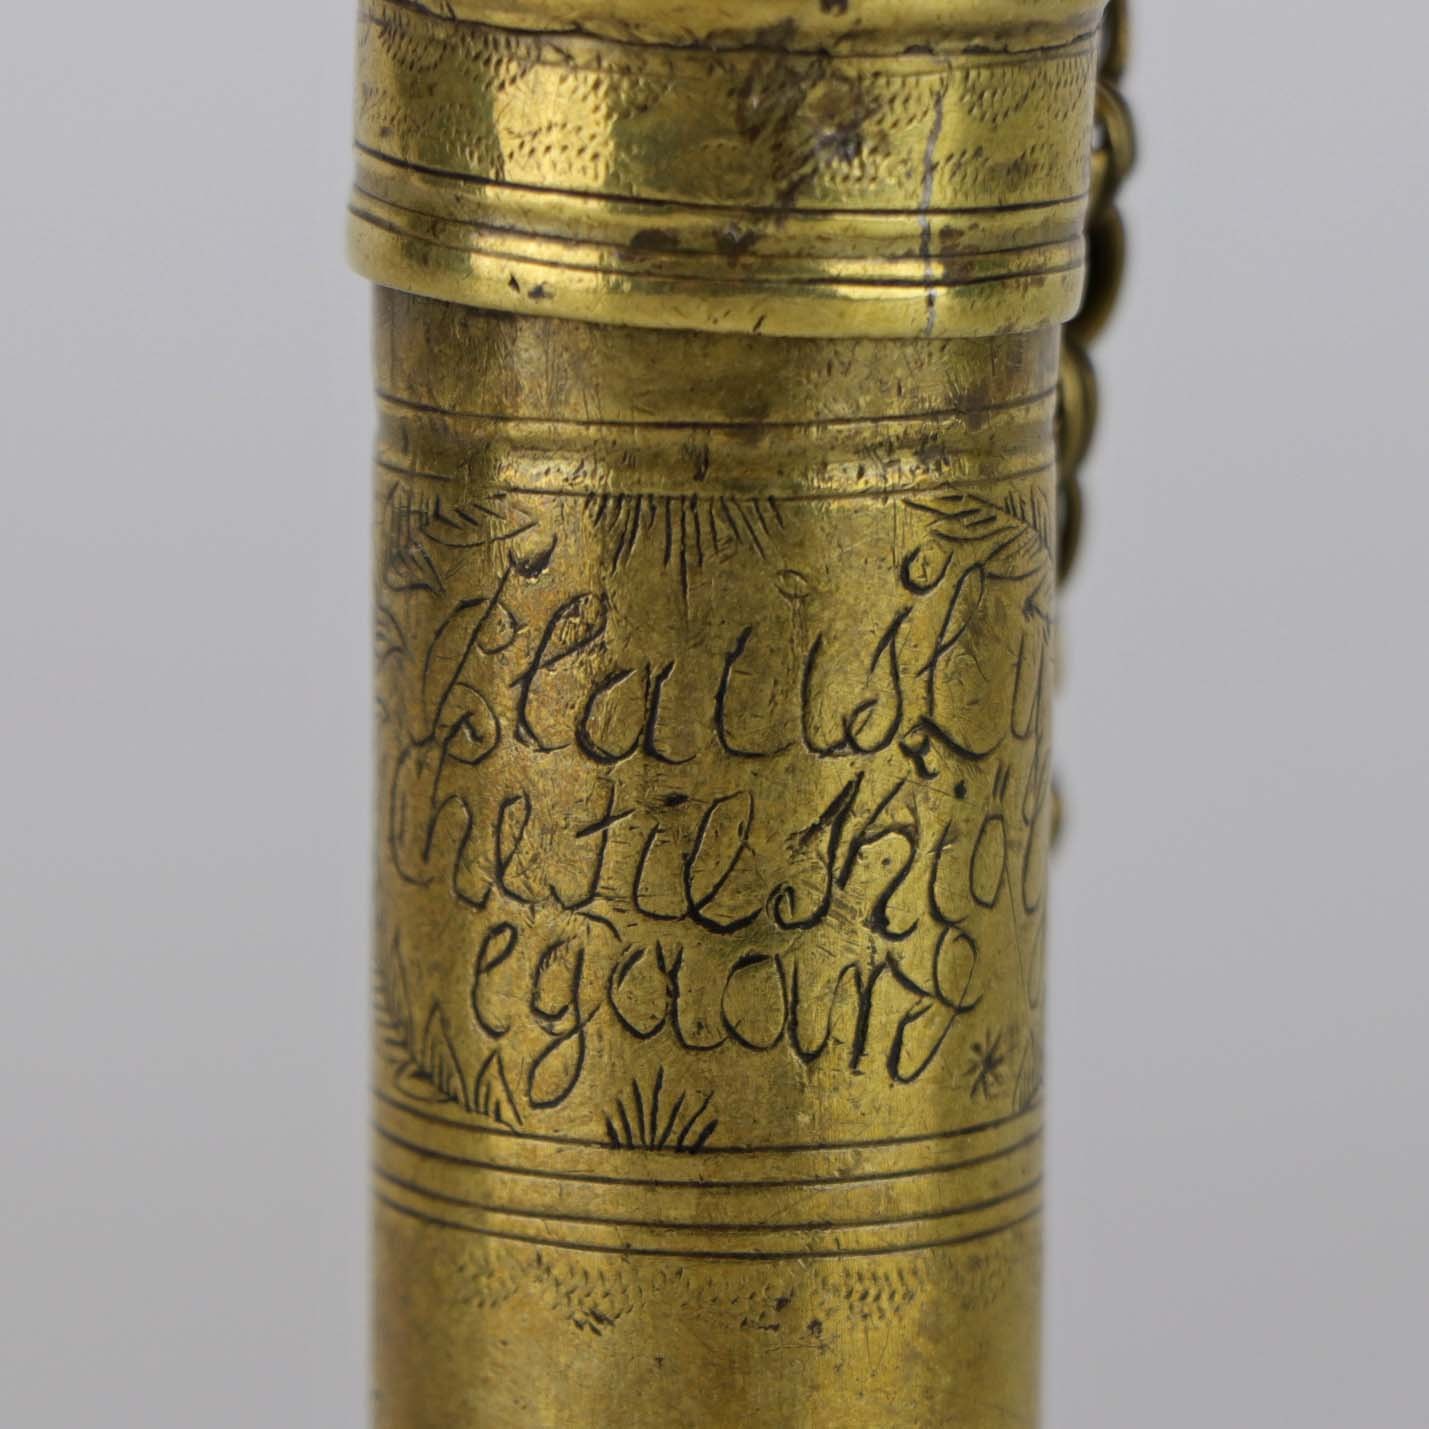 Claus Ly
che til Kiöl
egaard